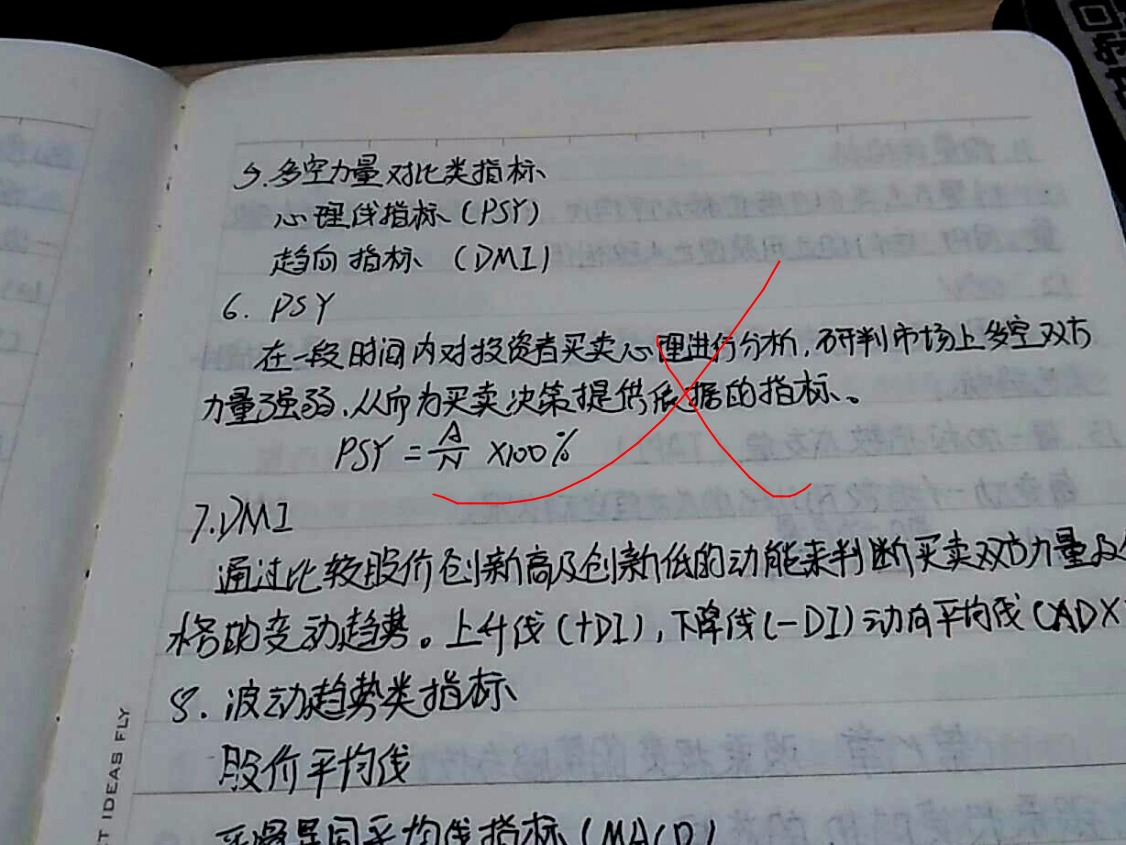 5.多空力量对比类指标
心理线指标(PSY)
趋向指标(DMI)
6. PSY
在一段时间内对投资者买卖心理进行分析,研判市场上多空双方
力量强弱,从而为买卖决策提供依据的指标。
PSY = A/N ×100%
7.DMI
通过比较股价创新高及创新低的动能来判断买卖双方力量及
格的变动趋势。上升线(+DI),下降线(-DI)动向平均线(ADX
8.波动趋势类指标
股价平均线
平滑异同平均线指标(MACD)
T IDEAS FLY